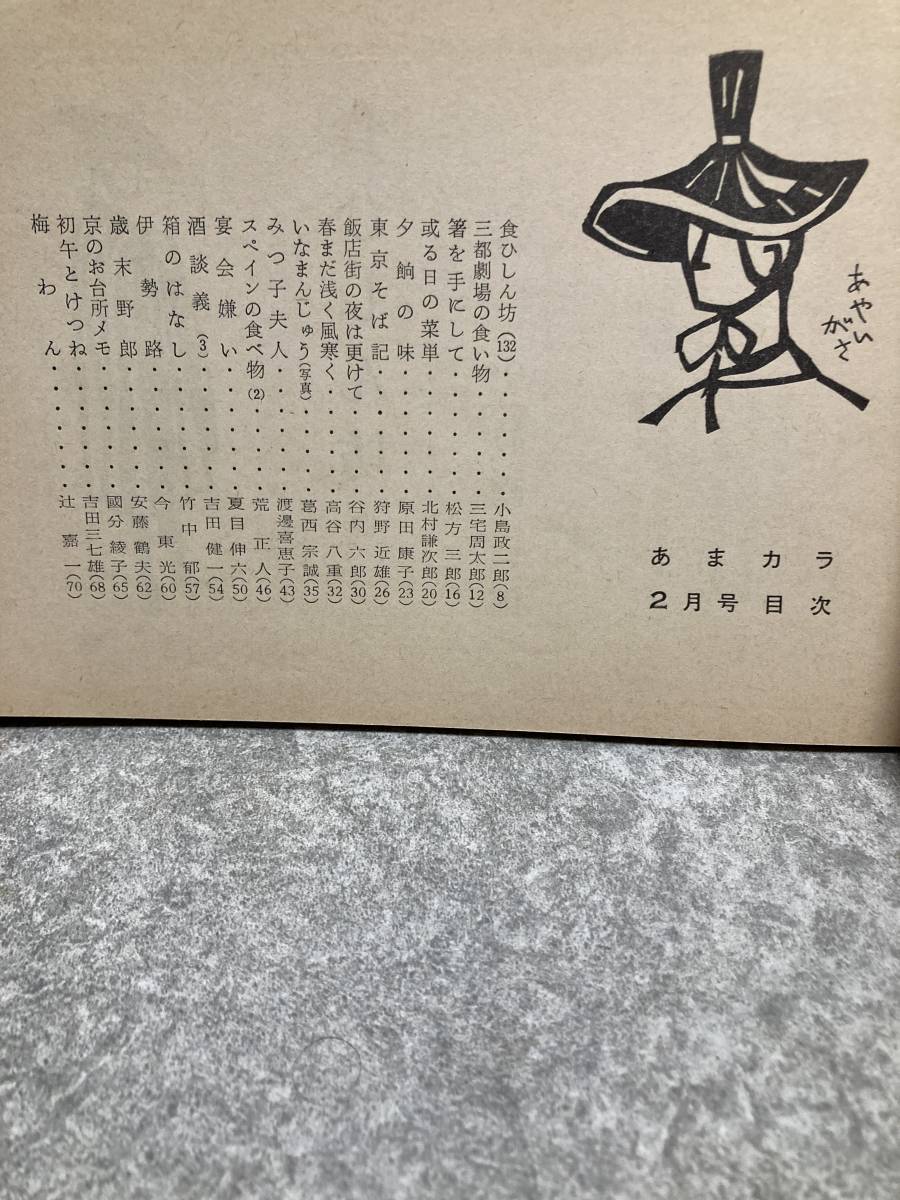 あやいがさ
あまカラ
2月号目次
食ひしん坊(132)・・・・・・小島政二郎(8)
三都劇場の食い物・・・・・・三宅周太郎(12)
箸を手にして・・・・・・松方三郎(16)
或る日の菜単・・・・・・北村謙次郎(20)
夕餉の味・・・・・・原田康子(23)
東京そば記・・・・・・狩野近雄(26)
飯店街の夜は更けて・・・・・谷内六郎(30)
春まだ浅く風寒く・・・・・・高谷八重(32)
いなまんじゅう(写真)・・・・・葛西宗誠(35)
みつ子夫人・・・・・・渡邊喜恵子(43)
スペインの食べ物(2)・・・・・荒正人(46)
宴会嫌い・・・・・・夏目伸六(50)
酒談義(3)・・・・・・吉田健一(54)
箱のはなし・・・・・・竹中郁(57)
伊勢路・・・・・・今東光(60)
歳末野郎・・・・・・安藤鶴夫(62)
京のお台所メモ・・・・・・國分綾子(65)
初午とけつね・・・・・・吉田三七雄(68)
梅わん・・・・・・辻嘉一(70)